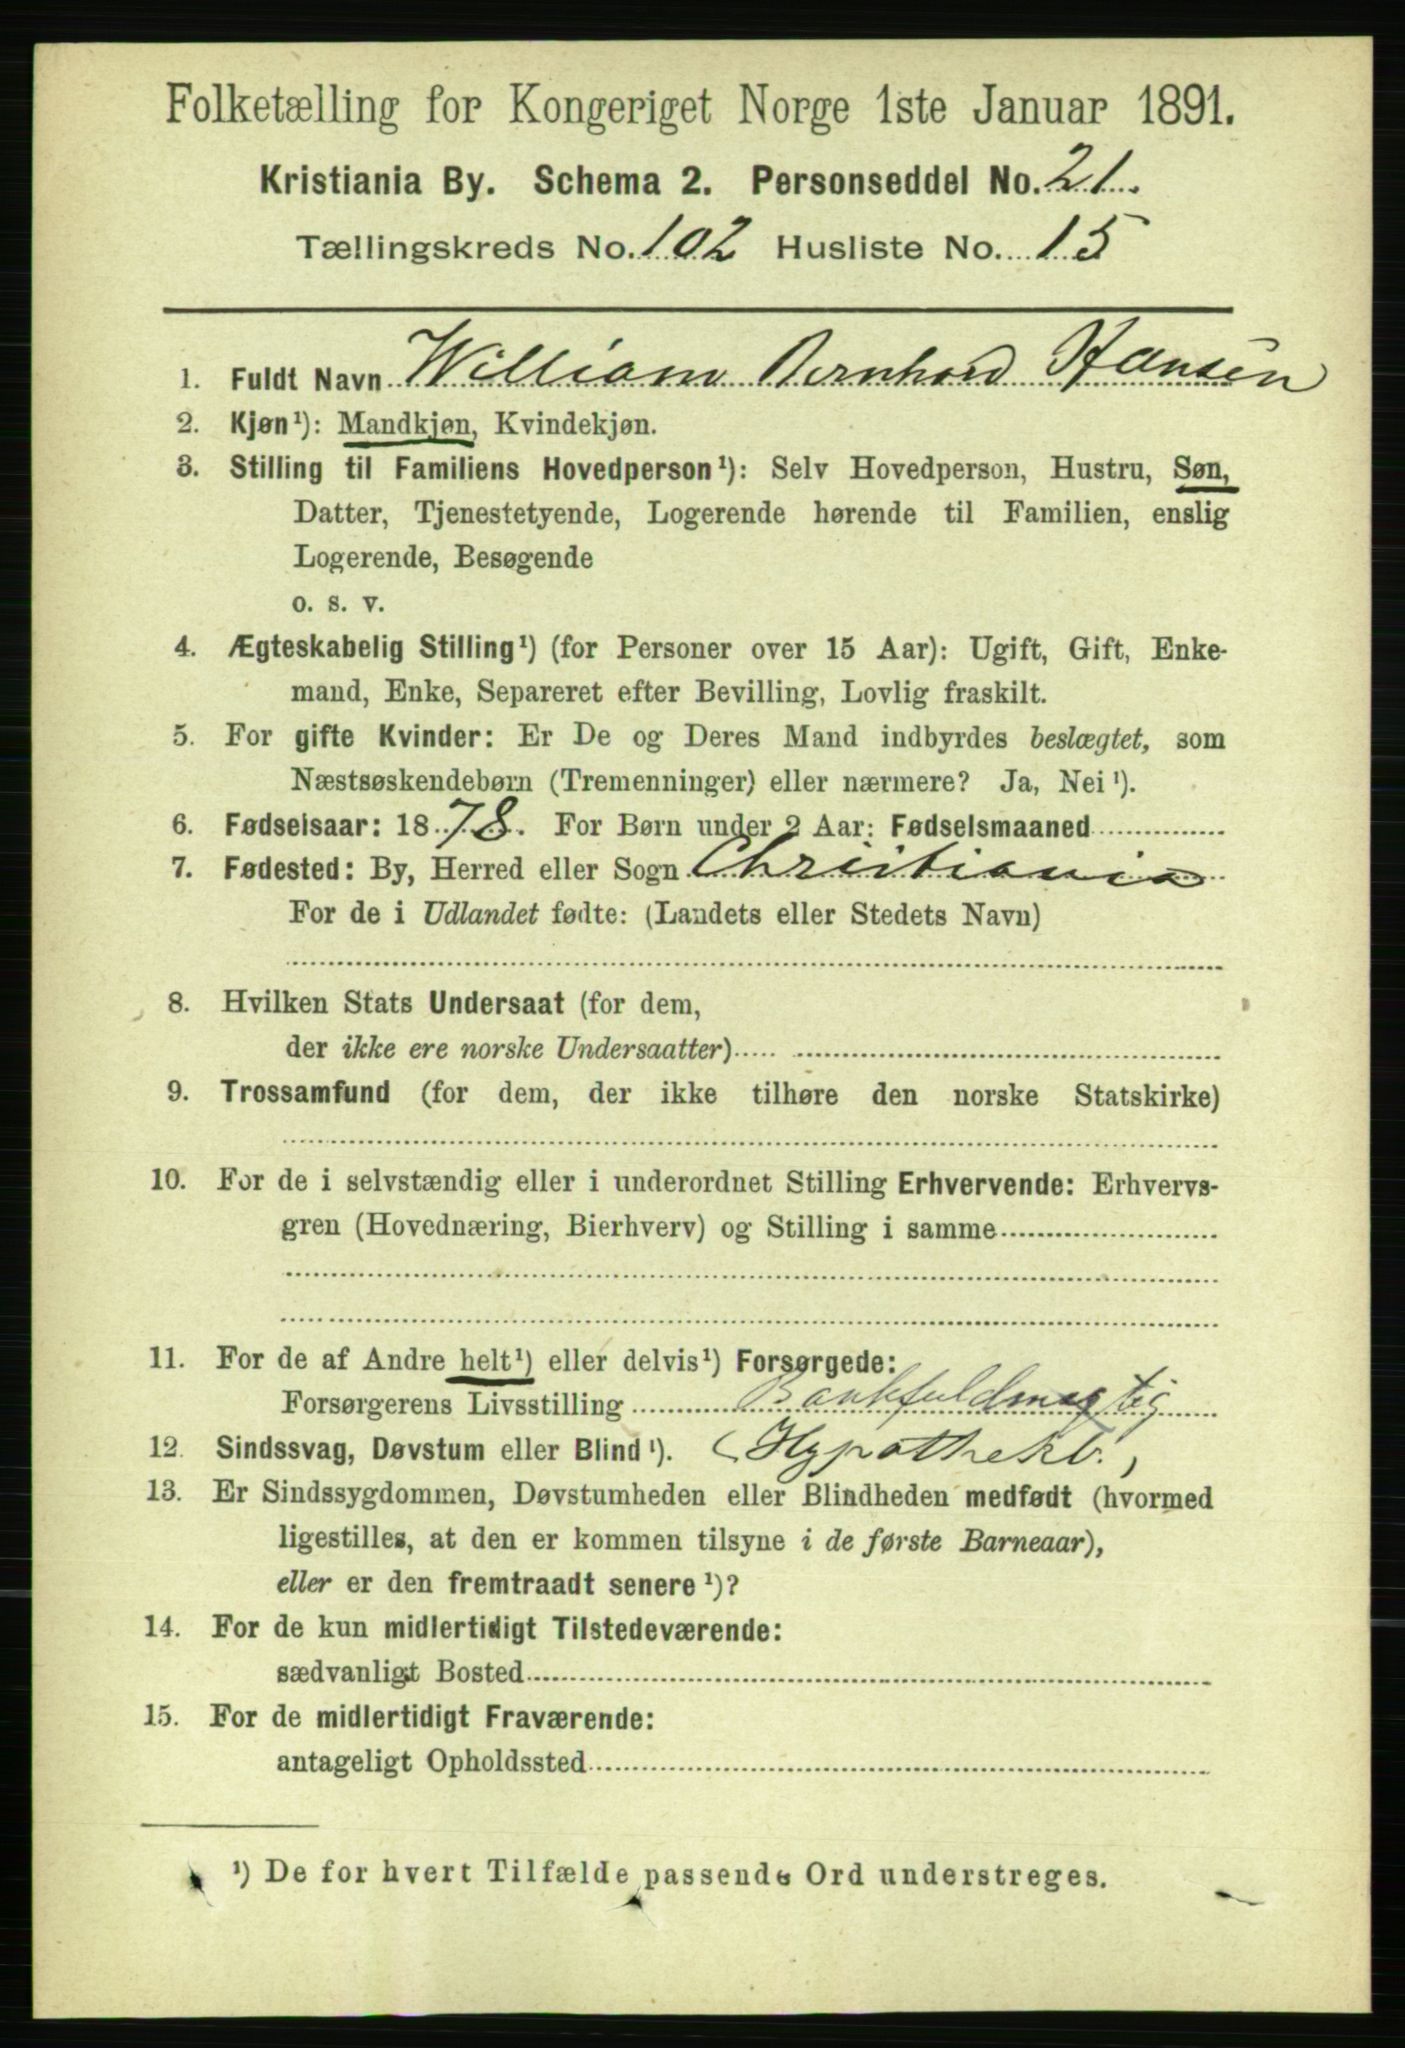 Folketælling for Kongeriget Norge 1ste Januar 1891.
Kristiania By. Schema 2. Personseddel No. 21.
Tællingskreds No. 102 Husliste No. 15
1. Fuldt Navn William Bernhard Hansen
2. Kjøn ¹): Mandkjøn, Kvindekjøn.
3. Stilling til Familiens Hovedperson ¹): Selv Hovedperson, Hustru, Søn,
Datter, Tjenestetyende, Logerende hørende til Familien, enslig
Logerende, Besøgende
o. s. v.
4. Ægteskabelig Stilling ¹) (for Personer over 15 Aar): Ugift, Gift, Enke-
mand, Enke, Separeret efter Bevilling, Lovlig fraskilt.
5. For gifte Kvinder: Er De og Deres Mand indbyrdes beslægtet, som
Næstsøskendebørn (Tremenninger) eller nærmere? Ja, Nei ¹).
6. Fødselsaar: 1878. For Børn under 2 Aar: Fødselsmaaned
7. Fødested: By, Herred eller Sogn Christiania
For de i Udlandet fødte: (Landets eller Stedets Navn)
8. Hvilken Stats Undersaat (for dem,
der ikke ere norske Undersaatter)
9. Trossamfund (for dem, der ikke tilhøre den norske Statskirke)
10. For de i selvstændig eller i underordnet Stilling Erhvervende: Erhvervs-
gren (Hovednæring, Bierhverv) og Stilling i samme
11. For de af Andre helt ¹) eller delvis ¹) Forsørgede:
Forsørgerens Livsstilling Bankfuldmægtig
12. Sindssvag, Døvstum eller Blind ¹). (Hypothekb.)
13. Er Sindssygdommen, Døvstumheden eller Blindheden medfødt (hvormed
ligestilles, at den er kommen tilsyne i de første Barneaar),
eller er den fremtraadt senere ¹)?
14. For de kun midlertidigt Tilstedeværende:
sædvanligt Bosted
15. For de midlertidigt Fraværende:
antageligt Opholdssted
¹) De for hvert Tilfælde passende Ord understreges.